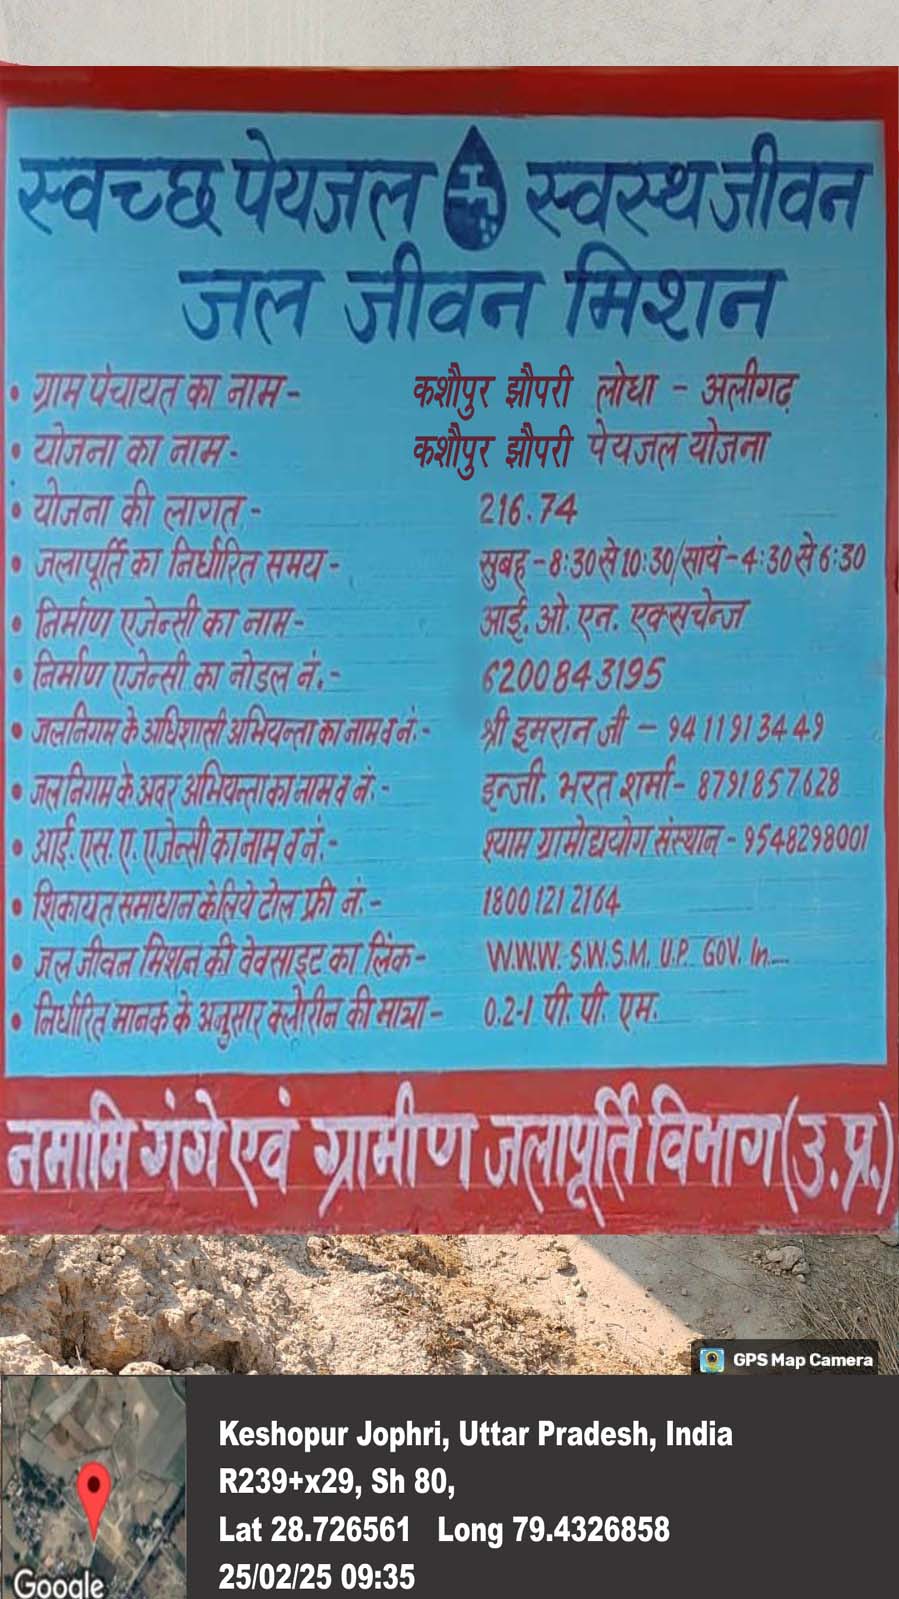 स्वच्छ पेयजल स्वस्थ जीवन
जल जीवन मिशन
• ग्राम पंचायत का नाम - कशौपुर झौपरी लोधा - अलीगढ़
• योजना का नाम - कशौपुर झौपरी पेयजल योजना
• योजना की लागत - 216.74
• जलापूर्ति का निर्धारित समय - सुबह - 8:30 से 10:30/सायं - 4:30 से 6:30
• निर्माण एजेन्सी का नाम - आई. ओ. एन. एक्सचेन्ज
• निर्माण एजेन्सी का नोडल नं. - 6200843195
• जलनिगम के अधिशासी अभियन्ता का नाम व नं. - श्री इमरान जी - 9411913449
• जलनिगम के अवर अभियन्ता का नाम व नं. - इन्जी. भरत शर्मा - 8791857628
• आई. एस. ए. एजेन्सी का नाम व नं. - श्याम ग्रामोद्ययोग संस्थान - 9548298001
• शिकायत समाधान के लिये टोल फ्री नं. - 1800 121 2164
• जल जीवन मिशन की वेबसाइट का लिंक - W.W.W. S.W.S.M. U.P. GOV. In....
• निर्धारित मानक के अनुसार क्लोरीन की मात्रा - 0.2-1 पी. पी. एम.
नमामि गंगे एवं ग्रामीण जलापूर्ति विभाग (उ.प्र.)
GPS Map Camera
Keshopur Jophri, Uttar Pradesh, India
R239+x29, Sh 80,
Lat 28.726561 Long 79.4326858
25/02/25 09:35
Google